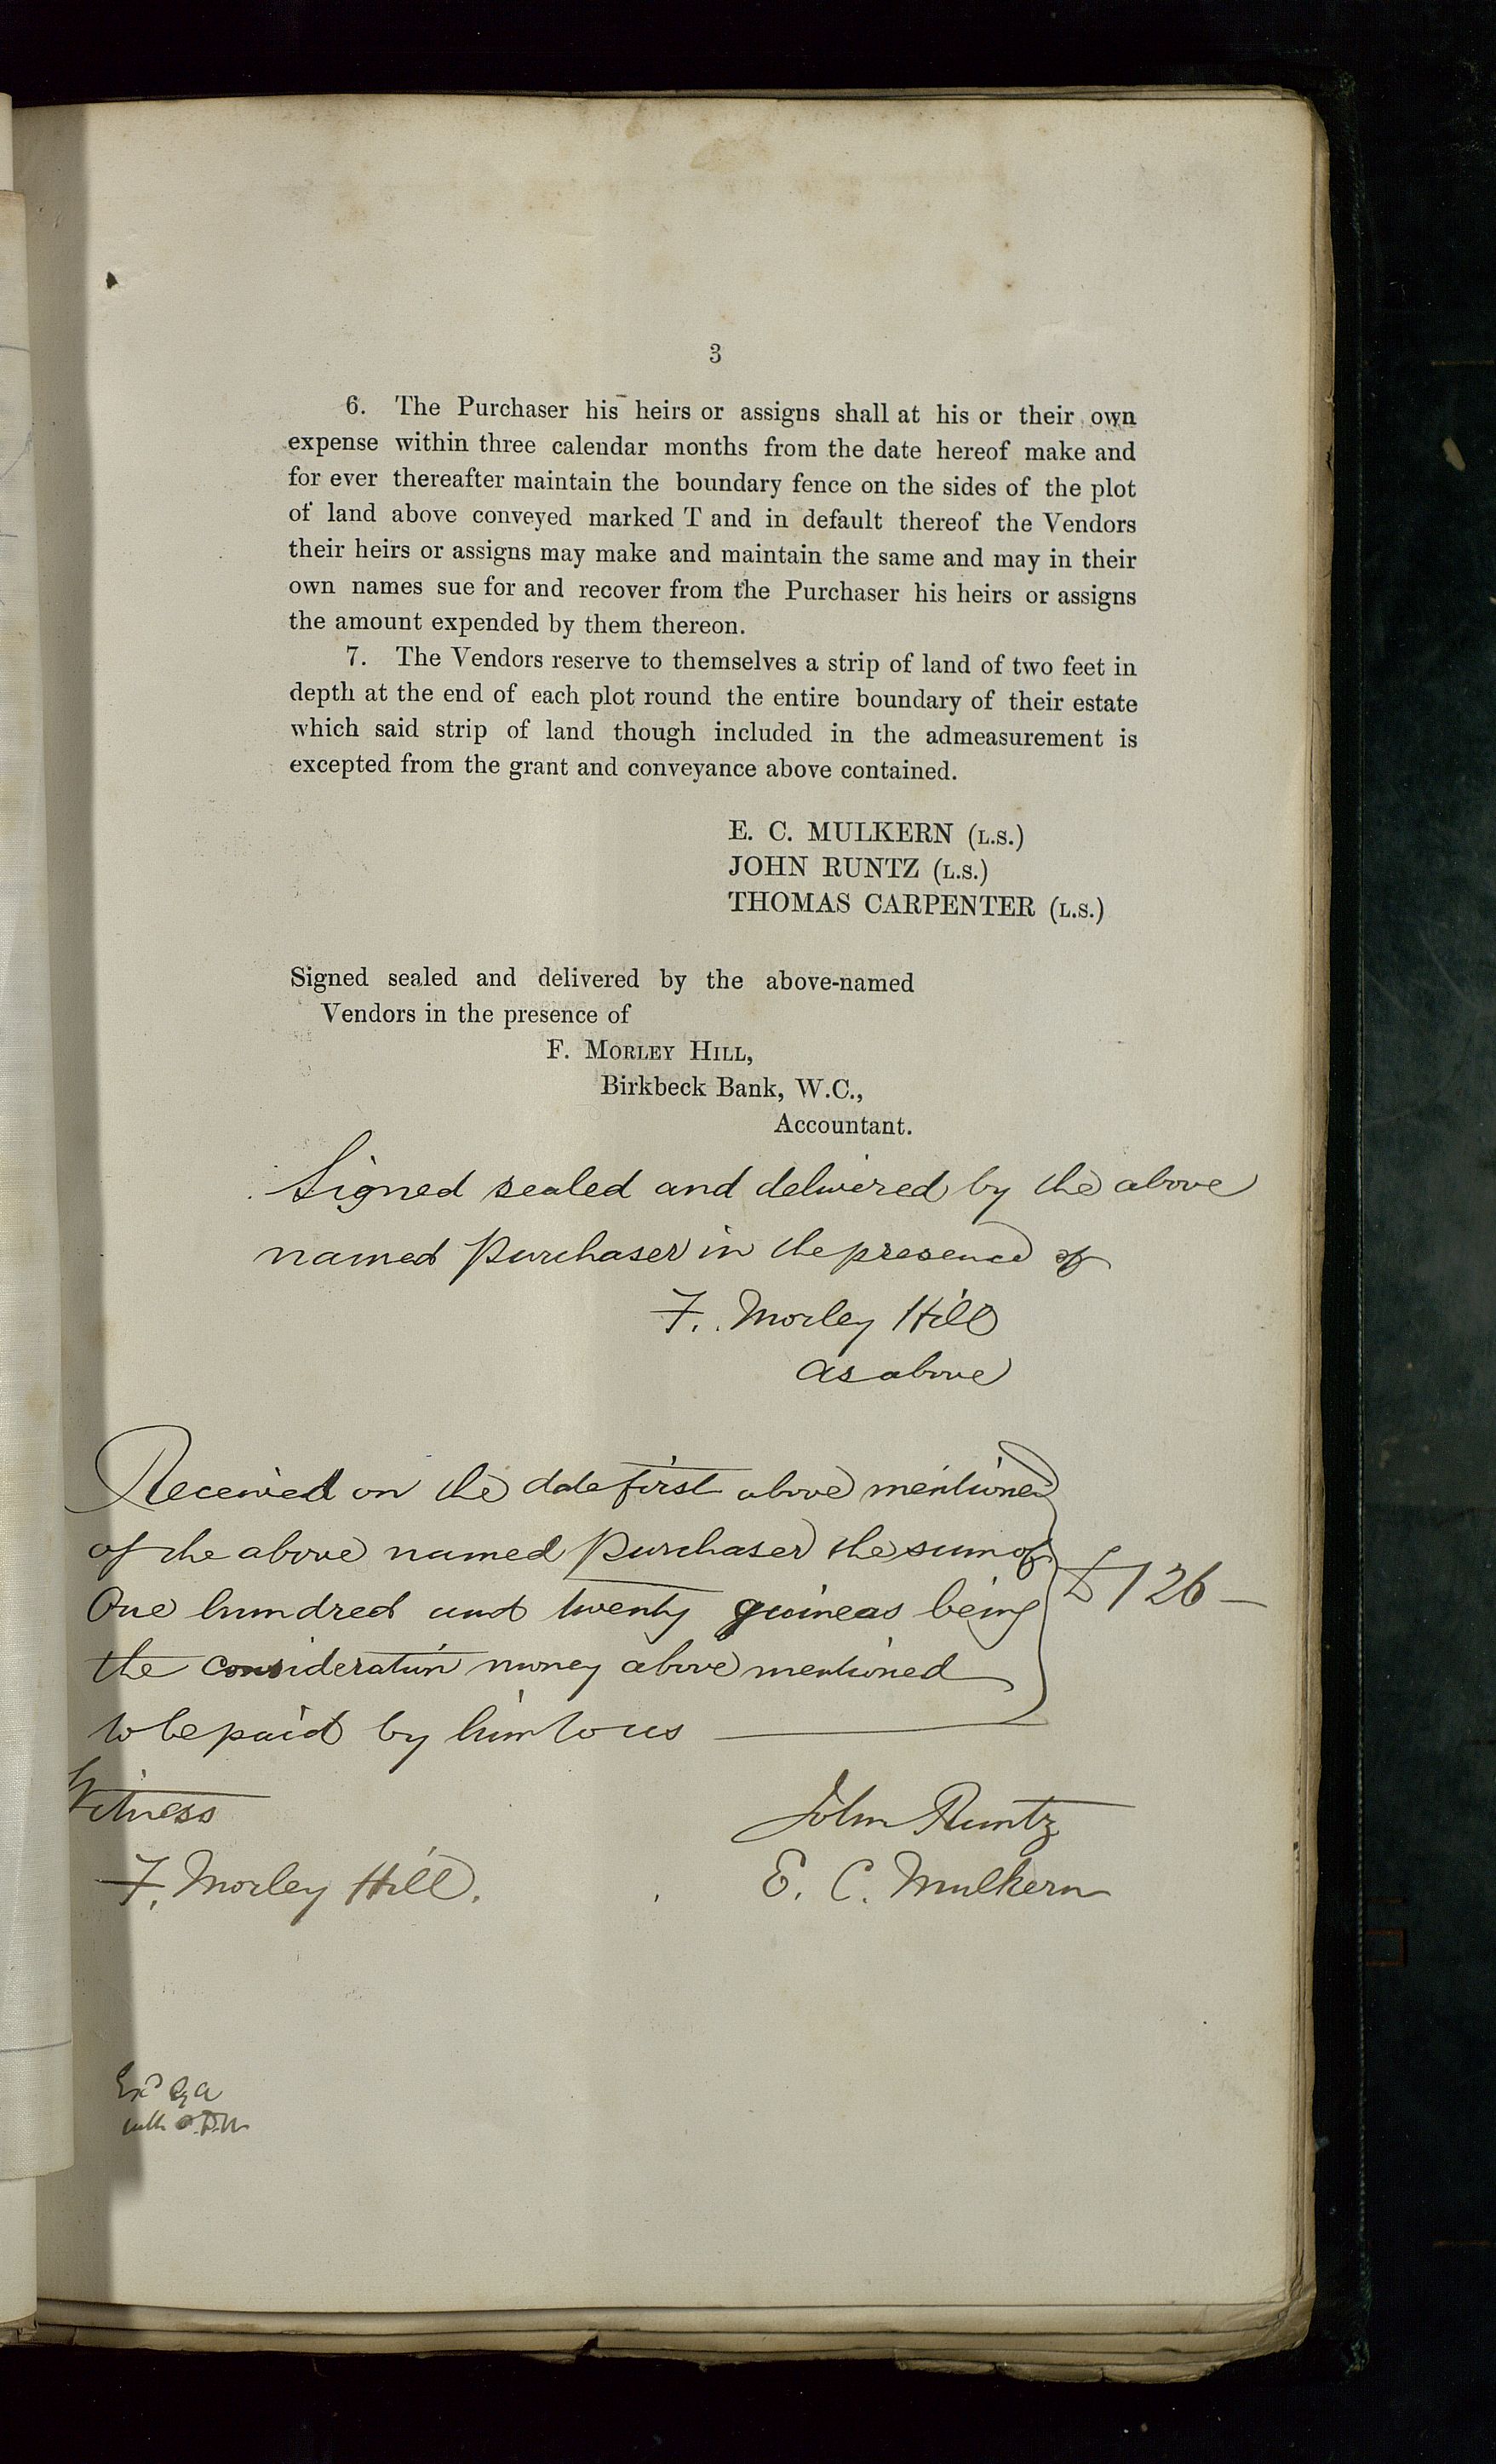 3
6. The Purchaser his heirs or assigns shall at his or their own
expense within three calendar months from the date hereof make and
for ever thereafter maintain the boundary fence on the sides of the plot
of land above conveyed marked T and in default thereof the Vendors
their heirs or assigns may make and maintain the same and may in their
own names sue for and recover from the Purchaser his heirs or assigns
the amount expended by them thereon.
7. The Vendors reserve to themselves a strip of land of two feet in
depth at the end of each plot round the entire boundary of their estate
which said strip of land though included in the admeasurement is
excepted from the grant and conveyance above contained.
E. C. MULKERN (L.S.)
JOHN RUNTZ (L.S.)
THOMAS CARPENTER (L.S.)
Signed sealed and delivered by the above-named
Vendors in the presence of
F. MORLEY HILL,
Birkbeck Bank, W.C.,
Accountant.
Signed sealed and delivered by the above
named Purchaser in the presence of
F. Morley Hill
as above
Received on the date first above mentioned
of the above named Purchaser the sum of
One hundred and twenty guineas being £126 —
the consideration money above mentioned
to be paid by him to us
Witness
John Runtz
F. Morley Hill.
E. C. Mulkern